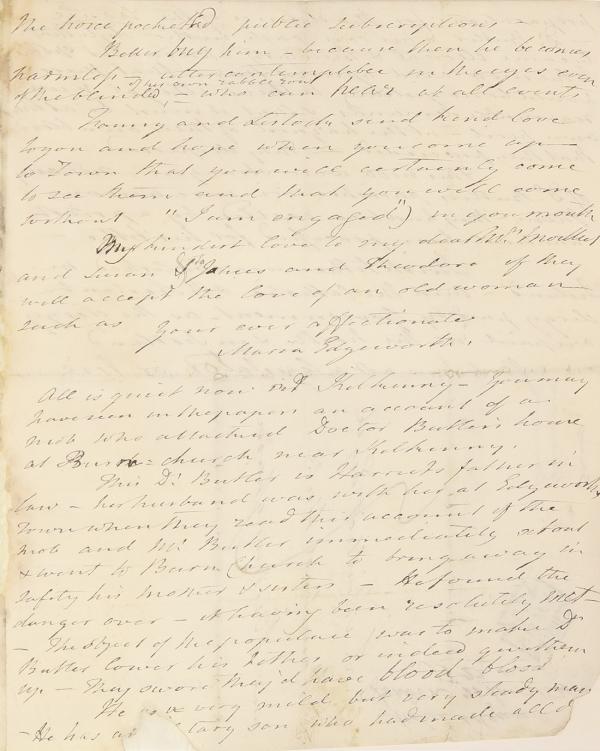 the voice pocketed public subscriptions –
Better buy him – because then he becomes
harmless – utter contemptible in the eyes even
of his own rabble rout
of the blinded, – who can hear at all events
Fanny and Lestock send kind love
to you and hope when you come up
to Town that you will certainly come
to see them and that you will come
without "I am engaged") in your mouth
My kindest love to my dear Mrs. Moilliet
and Susan & James and Theodore if they
will accept the love of an old woman
such as your ever affectionate
Maria Edgeworth.
All is quiet now at Kilkenny – You may
have seen in the papers an account of a
mob who attacked Doctor Butler's house
at Burn-church near Kilkenny.
This Dr. Butler is Harriet's father in
law – her husband was with her at Edgeworths
Town when they read this account of the
mob and Mr. Butler immediately set out
& went to Burn Church to bring away in
safety his mother & sisters – He found the
danger over – it having been resolutely met –
– The object of the populace was to make Dr.
Butler lower his tithes or indeed give them
up – They swore they'd have blood blood
He is a very mild but very steady man
– He has a tary son who had made all d